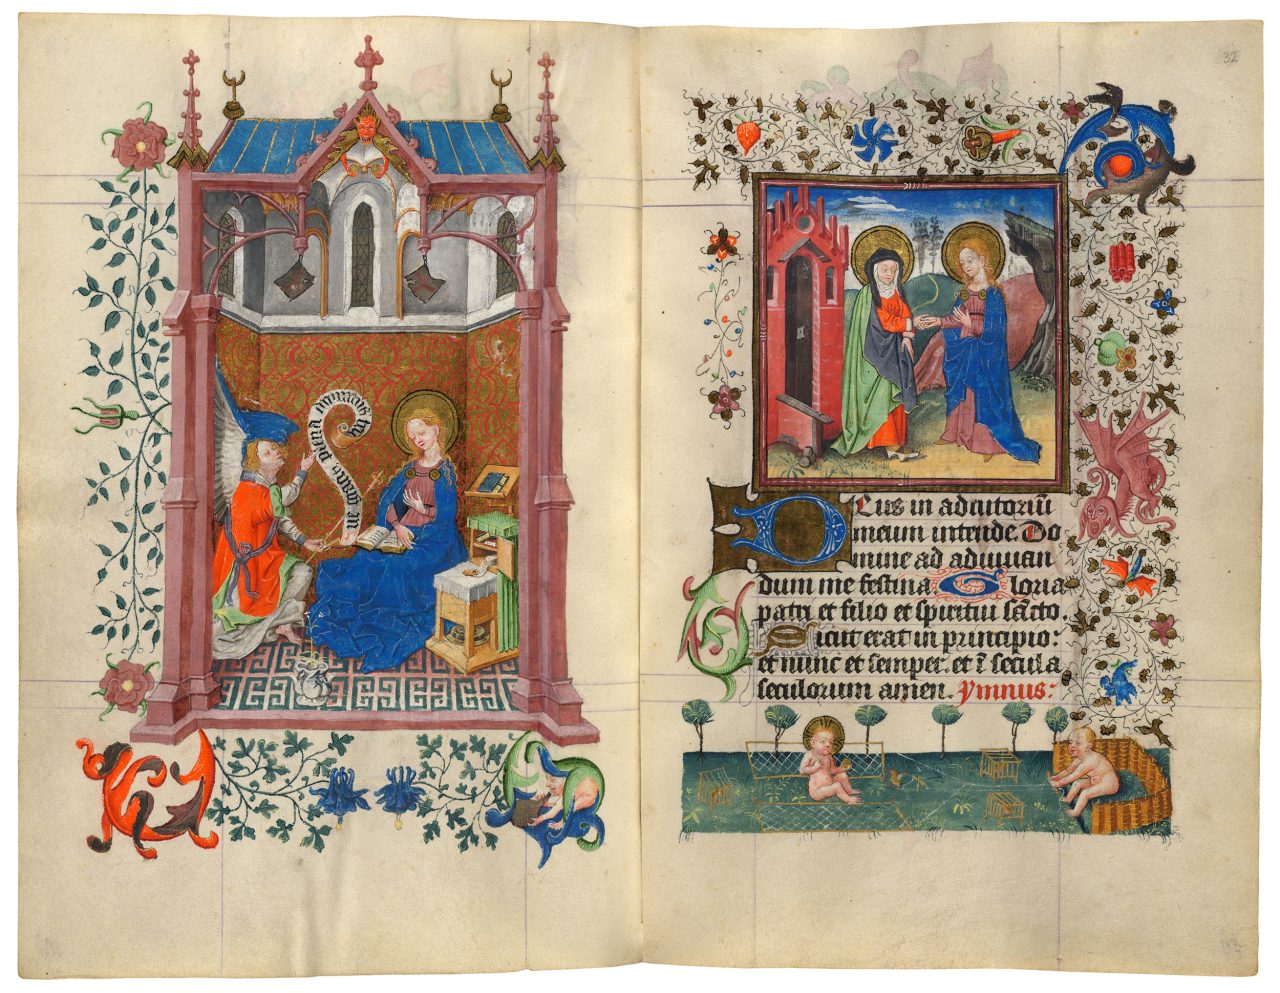 aue gracia plena dominus te
32
Deus in adiutoriū
meum intende. Do
mine ad adiuuan
dum me festina Gloria
patri et filio et spiritui sācto.
Sicut erat in principio:
et nunc et semper. et ī secula
seculorum amen. Ymnus: